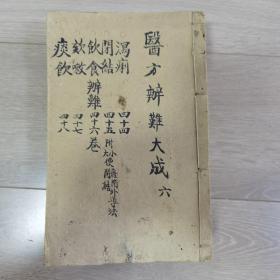 醫方辨難大成 六
瀉痢 四十四
閉結 四十五 附小便 大便閉結
飲食辨難 四十六卷
欬嗽 四十七
痰飲 四十八